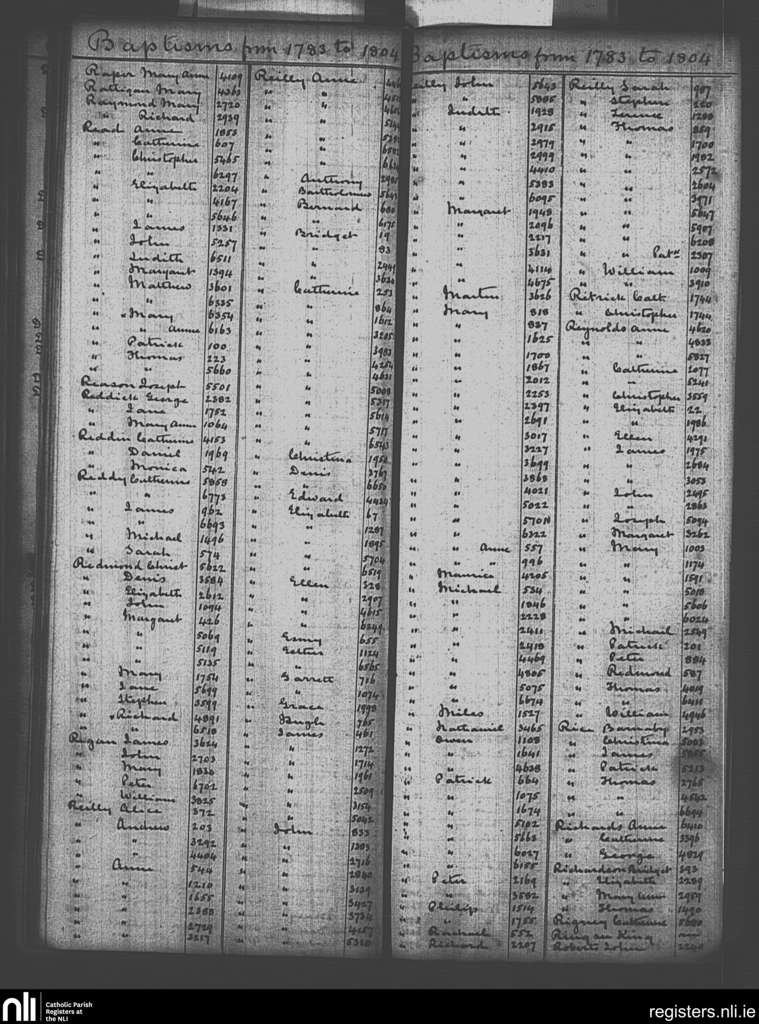 Baptisms from 1783 to 1804
Raper Mary Anne 4109
Rattigan Mary 4363
Raymond Mary 2720
" Richard 2939
Read Anne 1853
" Catherine 607
" Christopher 5465
" " 6297
" Elizabeth 2204
" " 4167
" " 5646
" James 1331
" John 5257
" Judith 6511
" Margaret 1394
" Matthew 3601
" " 6335
" Mary 6354
" " Anne 6163
" Patrick 100
" Thomas 223
" " 5660
Reason Joseph 5501
Reddick George 2382
" Jane 1752
" Mary Anne 1064
Reddin Catherine 4153
" Daniel 1969
" Monica 542
Reddy Catherine 5858
" " 6773
" James 962
" " 6693
" Michael 1496
" Sarah 574
Redmond Christ 5622
" Denis 3584
" Elizabeth 2612
" John 1094
" Margaret 426
" " 5069
" " 5119
" " 5135
" Mary 1754
" Jane 5699
" Stephen 3599
" Richard 4891
" " 6518
Regan James 3624
" John 2703
" Mary 1830
" Peter 6702
" William 3825
Reilly Alice 372
" Andrew 203
" " 3292
" " 4484
" Anne 544
" " 1210
" " 1655
" " 2388
" " 2729
" " 3217
Reilly Anne
" "
" "
" "
" "
" "
" "
" Anthony
" Bartholomew
" Bernard 680
" " 6175
" Bridget 19
" " 83
" " 2449
" " 3624
" Catherine 253
" " 864
" " 1612
" " 3205
" " 3983
" " 4254
" " 4631
" " 5008
" " 5317
" " 5614
" " 5717
" " 6543
" Christina 1954
" Denis 3767
" " 6650
" Edward 4424
" Elizabeth 67
" " 1287
" " 1895
" " 5704
" " 6519
" Ellen 328
" " 2907
" " 4615
" " 6249
" Esmy 655
" Esther 1124
" " 6565
" Garrett 716
" " 1074
" Grace 1998
" Hugh 765
" James 461
" " 1272
" " 1714
" " 1961
" " 2509
" " 3154
" " 5042
" John 833
" " 1383
" " 2716
" " 2840
" " 3129
" " 3427
" " 3734
" " 4157
" " 5320
Baptisms from 1783 to 1804
Reilly John 5643
" " 5885
" Judith 1928
" " 2915
" " 2979
" " 2999
" " 4410
" " 5383
" " 6095
" Margaret 1948
" " 2096
" " 2217
" " 3631
" " 4114
" " 4675
" Martin 3626
" Mary 818
" " 827
" " 1625
" " 1700
" " 1867
" " 2012
" " 2253
" " 2397
" " 2691
" " 3017
" " 3227
" " 3699
" " 3868
" " 4021
" " 5022
" " 5701
" " 6322
" " Anne 557
" " " 996
" Maurice 4205
" Michael 534
" " 1846
" " 2228
" " 2411
" " 2418
" " 4469
" " 4805
" " 5075
" " 6674
" Miles 1527
" Nathaniel 3465
" Owen 1108
" " 1641
" " 4638
" Patrick 664
" " 1075
" " 1674
" " 5102
" " 5663
" " 6027
" " 6155
" Peter 2169
" " 3582
" Philip 1514
" " 1755
" Rachael 552
" Richard 2207
Reilly Sarah 907
" Stephen 220
" Terence 1288
" Thomas 859
" " 1700
" " 1982
" " 2572
" " 2604
" " 3971
" " 5647
" " 5907
" " 6208
" " Patk 2307
" William 1009
" " 3910
Ritrick Cath 1744
" Christopher 1744
Reynolds Anne 4620
" " 4833
" " 5827
" Catherine 2077
" " 5241
" Christopher 3559
" Elizabeth 22
" " 1986
" Ellen 4291
" James 1975
" " 2684
" " 3053
" John 2495
" " 2863
" Joseph 5094
" Margaret 3262
" Mary 1003
" " 1174
" " 1591
" " 5018
" " 5606
" " 6024
" Michael 2549
" Patrick 201
" Peter 884
" Redmond 587
" Thomas 4819
" " 6411
" William 4946
Rice Barnaby 2953
" Christina 5003
" James
" Patrick 5213
" Thomas 2765
" " 4542
" " 6694
Richards Anne 6410
" Catherine 3396
" George 4829
Richardson Bridget 393
" Elizabeth 2289
" Mary Anne 2957
" Thomas 1490
Rigney Catherine 5680
Ring see King
Roberts John 2240
nli
Catholic Parish
Registers at
the NLI
registers.nli.ie